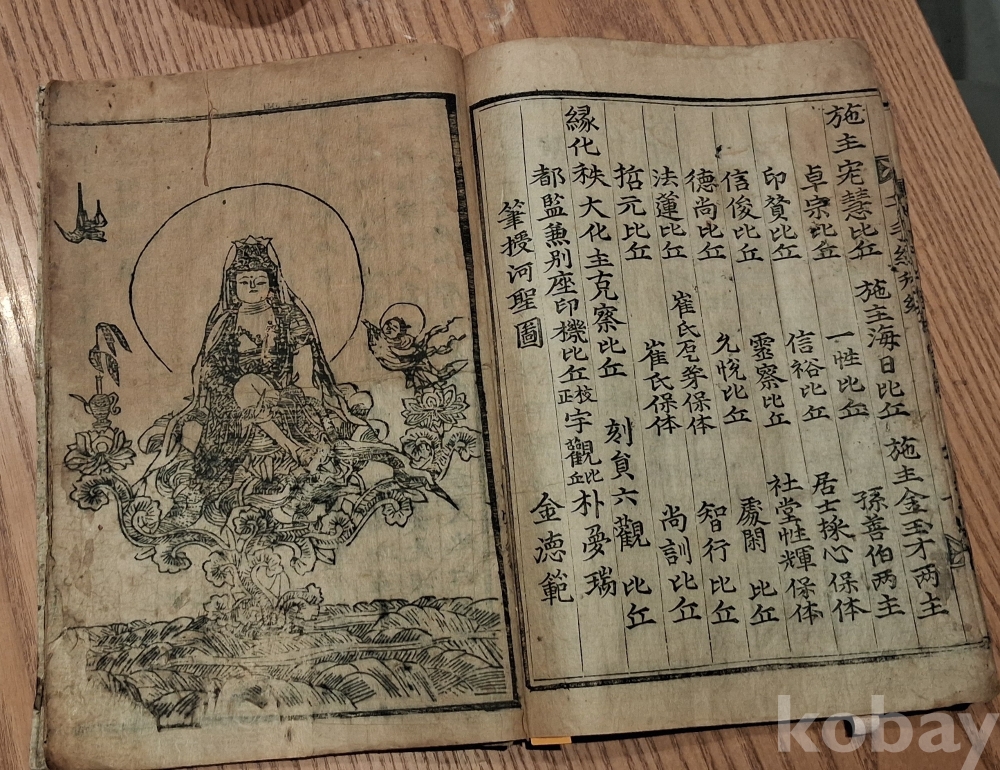 施主宏慧比丘 施主海日比丘 施主金玉才两主
卓宗比丘 一性比丘 孫善伯两主
印賛比丘 信裕比丘 居士採心保体
信俊比丘 靈察比丘 社堂性輝保体
德尚比丘 允悅比丘 處閑比丘
法蓮比丘 崔氏芽保体 智行比丘
哲元比丘 崔氏保体 尚訓比丘
緣化秩大化主克察比丘 刻員六觀比丘
都監兼別座印機比丘 校正宇觀比丘 朴夢瑞
筆授河聖圖 金德範
kobay